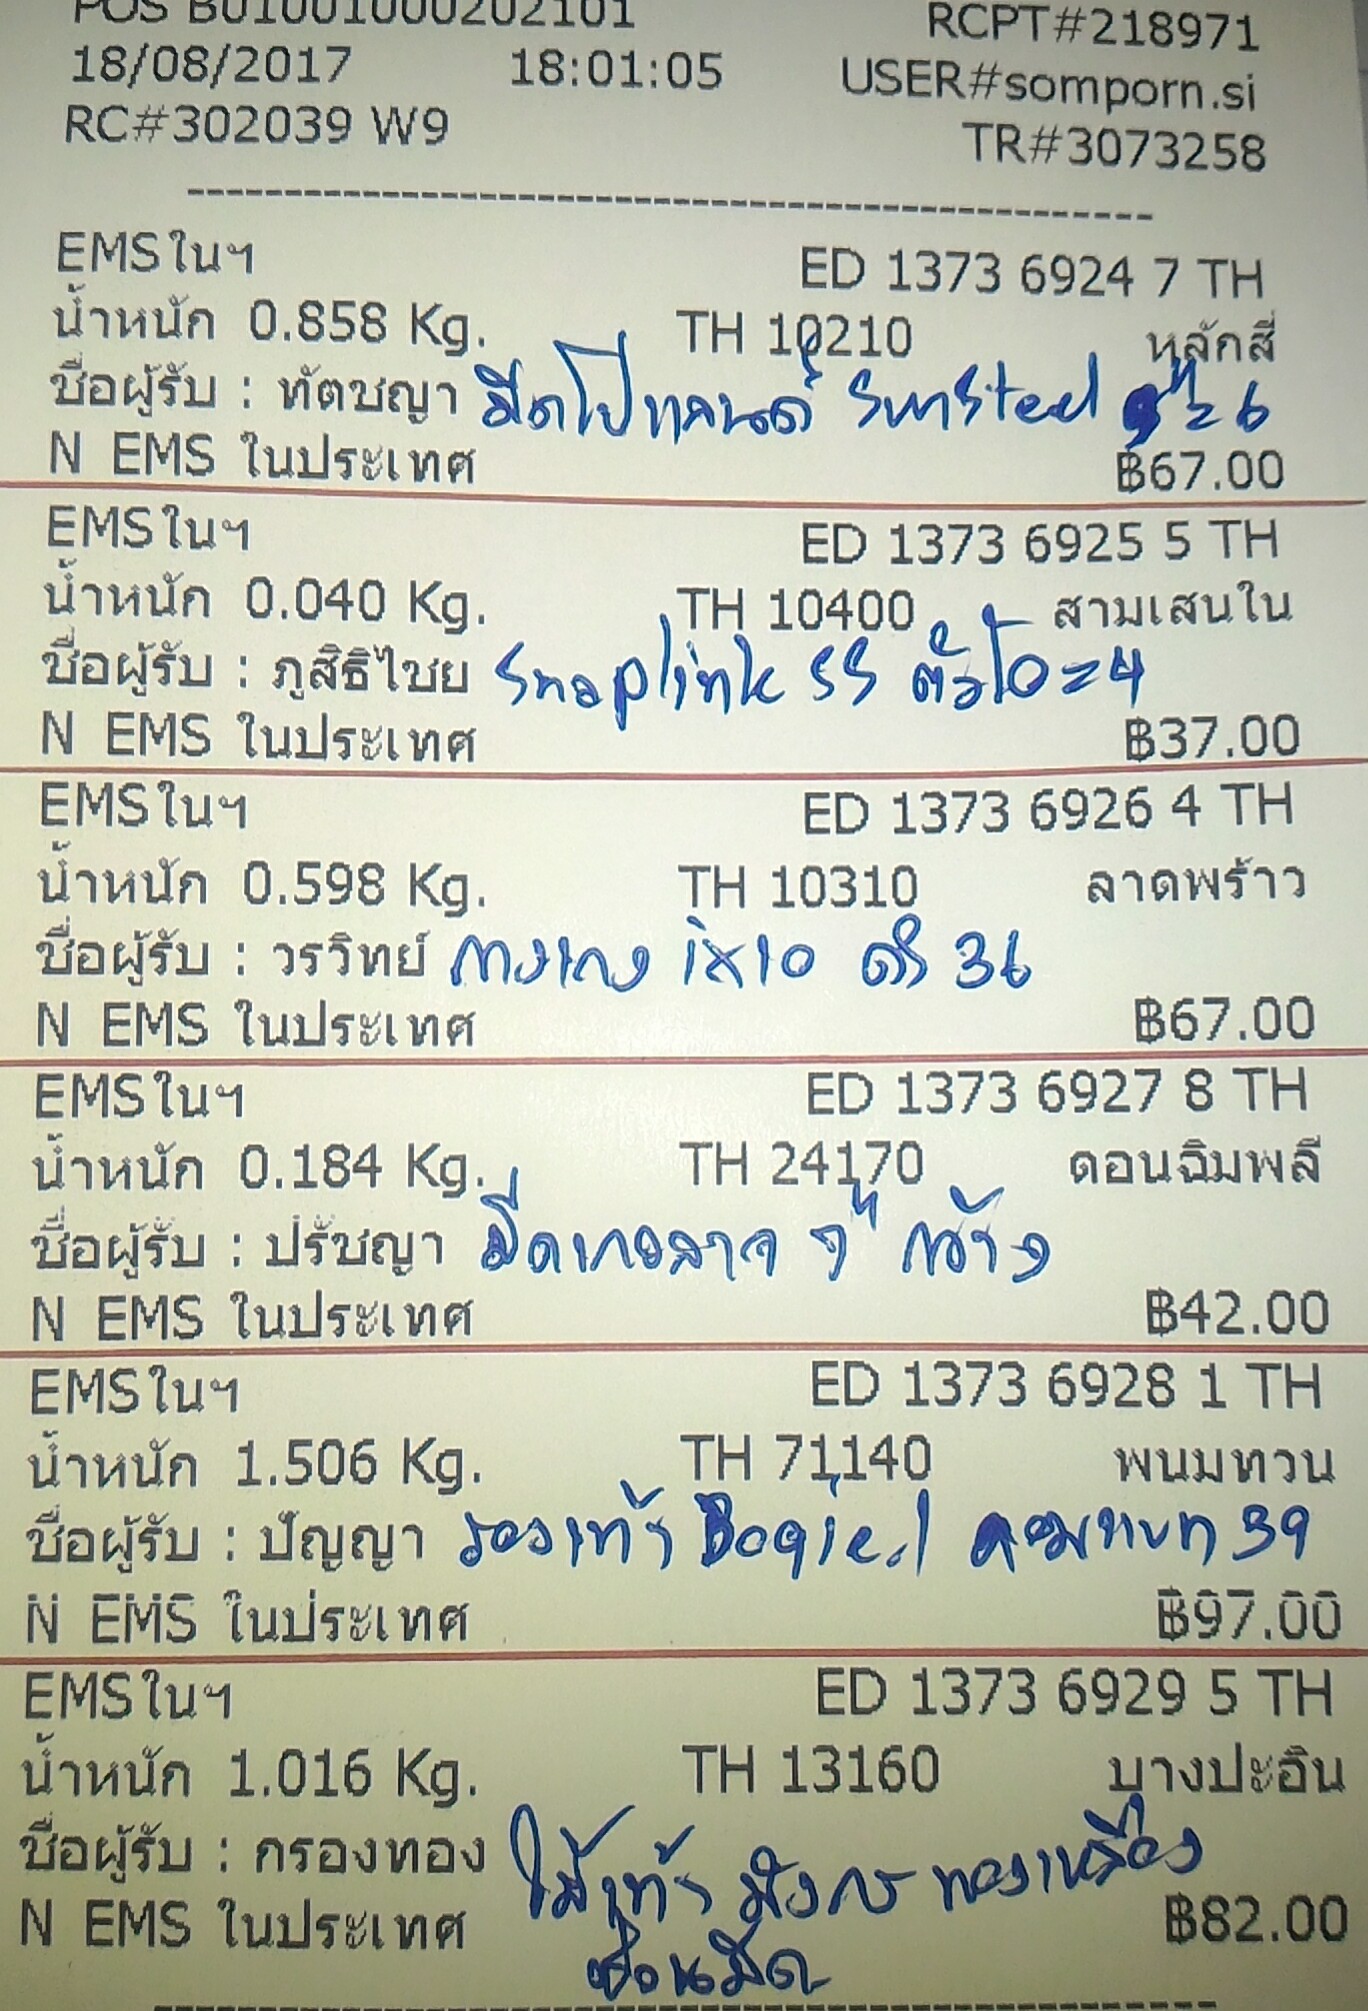 POS B01001000202101
RCPT#218971
18/08/2017 18:01:05 USER#somporn.si
RC#302039 W9 TR#3073258
EMSในฯ ED 1373 6924 7 TH
น้ำหนัก 0.858 Kg. TH 10210 หลักสี่
ชื่อผู้รับ : ทัตชญา มีดโปแลนด์ SunSteel 9"=6
N EMS ในประเทศ ฿67.00
EMSในฯ ED 1373 6925 5 TH
น้ำหนัก 0.040 Kg. TH 10400 สามเสนใน
ชื่อผู้รับ : ภูสิธิไชย Snaplink SS ตัวโอ=4
N EMS ในประเทศ ฿37.00
EMSในฯ ED 1373 6926 4 TH
น้ำหนัก 0.598 Kg. TH 10310 ลาดพร้าว
ชื่อผู้รับ : วรวิทย์ กางเกง ix10 ดำ 36
N EMS ในประเทศ ฿67.00
EMSในฯ ED 1373 6927 8 TH
น้ำหนัก 0.184 Kg. TH 24170 ดอนฉิมพลี
ชื่อผู้รับ : ปรัชญา มีดแกะสลาก กว้าง
N EMS ในประเทศ ฿42.00
EMSในฯ ED 1373 6928 1 TH
น้ำหนัก 1.506 Kg. TH 71140 พนมทวน
ชื่อผู้รับ : ปัญญา รองเท้า คอมแบท 39
N EMS ในประเทศ ฿97.00
EMSในฯ ED 1373 6929 5 TH
น้ำหนัก 1.016 Kg. TH 13160 บางปะอิน
ชื่อผู้รับ : กรองทอง ไม้เท้า มังกร ทองเหลือง
N EMS ในประเทศ ฿82.00
ซ่อนมีด